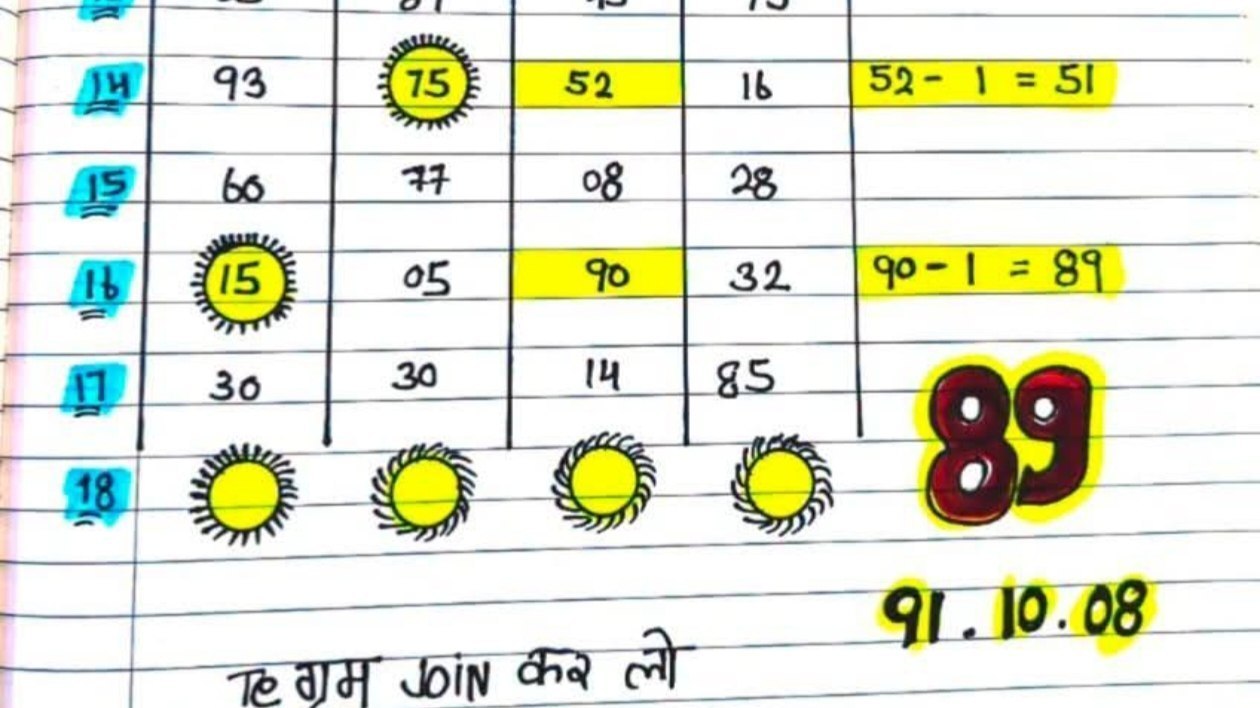 14 93 75 52 16 52 - 1 = 51
15 60 77 08 28
16 15 05 90 32 90 - 1 = 89
17 30 30 14 85
18 89
91 . 10 . 08
Te ग्राम JOiN कर लो